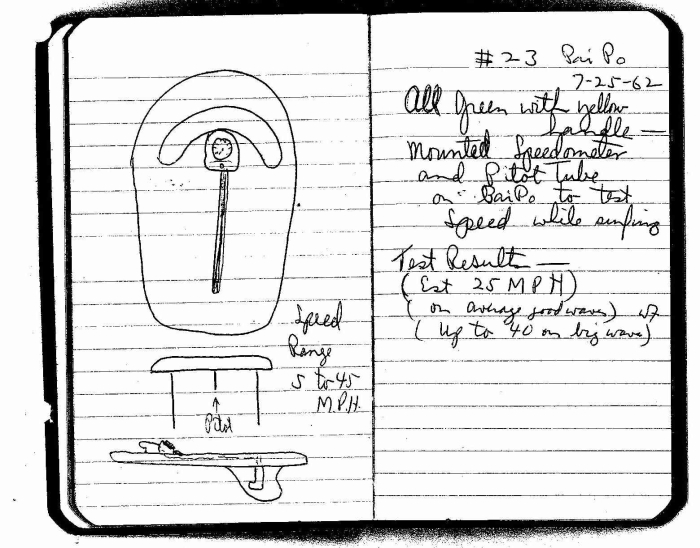 Speed
Range
5 to 45
M.P.H.
Pitot
#23 Bai Po
7-25-62
All Green with yellow
handle —
Mounted Speedometer
and Pitot Tube
on BaiPo to Test
Speed while surfing
Test Results —
(Est 25 MPH)
(on average good waves)
(Up to 40 on big wave)